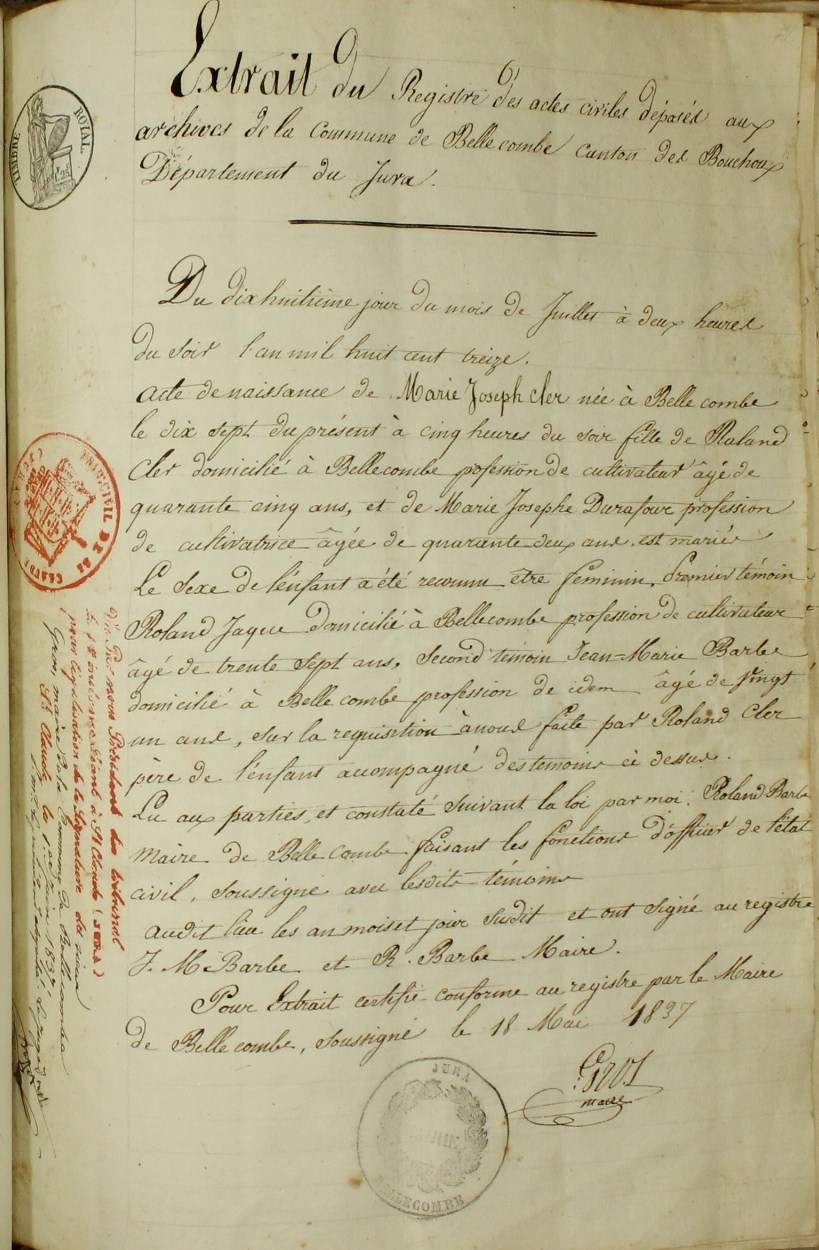 Extrait du Registre des actes civiles déposés aux
archives de la Commune de Bellecombe canton des Bouchoux
Département du Jura.
TIMBRE ROYAL.
Du dix huitième jour du mois de Juillet à deux heures
du soir l'an mil huit cent treize.
acte de naissance de Marie Joseph Cler née à Bellecombe
le dix sept du présent à cinq heures du soir fille de Roland
Cler domicilié à Bellecombe pofession de cultivateur âgé de
quarante cinq ans, et de Marie Josephe Durafour profession
de cultivatrice âgée de quarante deux ans, est mariés
Le Sexe de l'enfant a été reconnu être féminin, Premier témoin
Roland Jaque domicilié à Bellecombe profession de cultivateur
âgé de trente sept ans. Second témoin Jean-Marie Barbe
domicilié à Bellecombe profession de idem âgé de vingt
un ans, sur la requisition à nous faite par Roland Cler
père de l'enfant accompagné des temoins ci dessus.
Lu aux parties, et constaté suivant la loi par moi. Roland Barbe
Maire de Bellecombe faisant les fonctions d'officier de l'état
civil, soussigné avec lesdits témoins
audit lieu les an mois et jour susdit et ont signé au registre
J. M Barbe et R. Barbe Maire.
Pour Extrait certifié conforme au registre par le Maire
de Bellecombe, soussigné le 18 Mai 1837
Gros
maire
JURA
BELLECOMBE
CIVIL DE St
CLAUDE
nous Président du tribunal
séant à St Claude (JURA)
pour légalisation de la Signature du sieur
Gros, maire de la Commune de Bellecombe
St Claude, le 1837